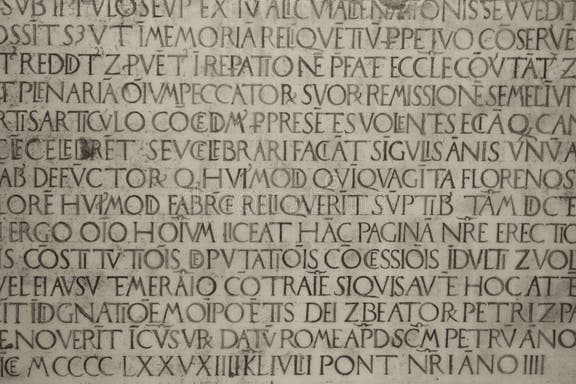 OSSIT S3VT IMEMORIA RELIQVETIV PPETVO COSERVE
T REDDT Z PVET IREPATIONE PFATE ECCLE COVTAT Z
T PLENARIA OIVM PECCATOR SVOR REMISSIONE SEMEL I VIT
RTIS ARTICVLO COCEDM P PRESETES VOLENTES ECIA Q CAN
CELEBRET SEV CELEBRARI FACIAT SIGVLIS ANIS VNVA
AB DEFVCTOR Q HVIMOD QVIQVAGITA FLORENOS
LORE HVIMOD FABRCE RELIQVERIT SVPTIB TAM DCTE
ERGO OIO HOIVM LICEAT HAC PAGINA NRE ERECTIO
S COSTITVTIOIS DPVTATIOIS COCESSIOIS IDVLTI Z VOL
VEL EI AVSV TEMERAIO COTRAIE SI QVIS AVTE HOC ATTE
IT IDGNATIOE MOIPOTETIS DEI Z BEATOR PETRI Z PA
E NOVERIT ICVSVR DATV ROME APD SCM PETRV ANO
ICE M CCCC LXXVXIIII KL IVLII PONT NRI ANO IIII